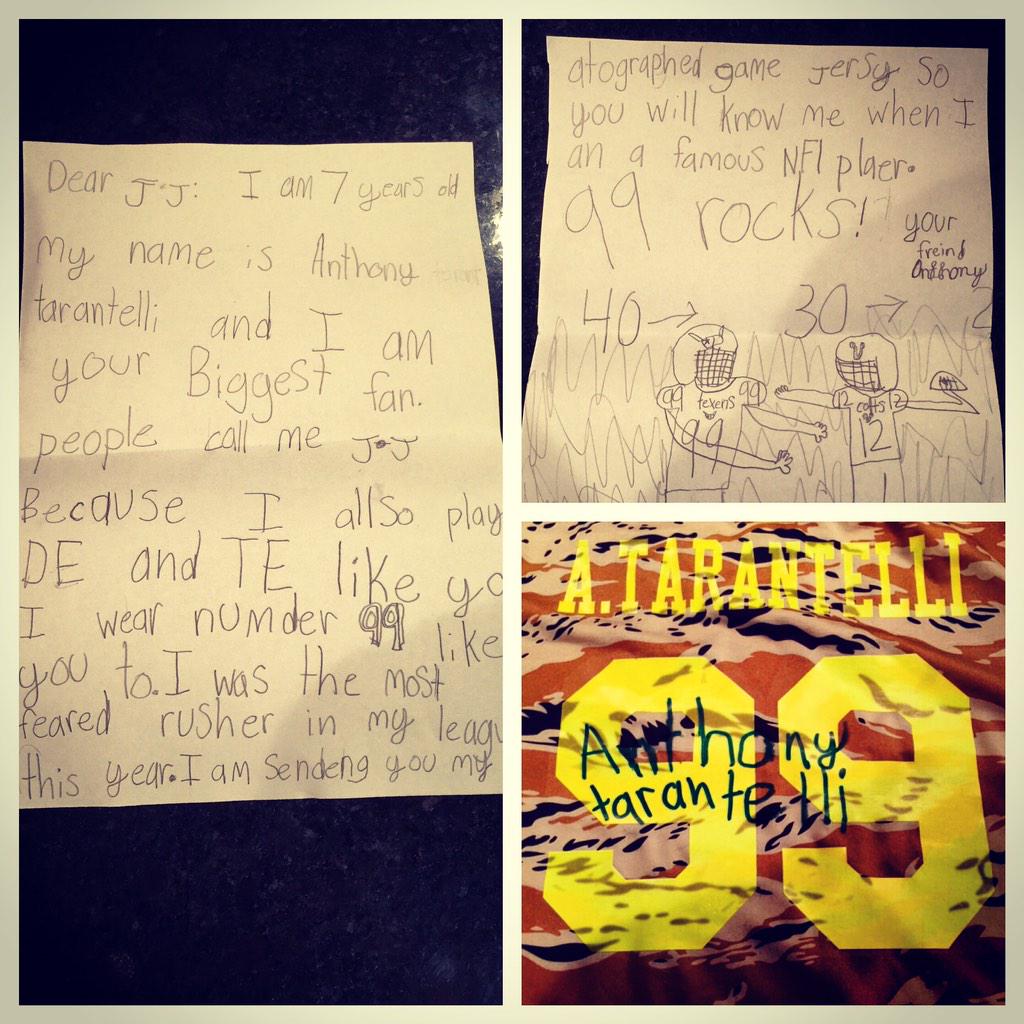 Dear J.J: I am 7 years old
My name is Anthony
tarantelli and I am
your Biggest fan.
people call me J.J
Because I allso play
DE and TE like yo
I wear numder 99 like
you to. I was the most
feared rusher in my leagu
this year. I am sendeng you my
atographed game Jersy so
you will know me when I
an a famous NFl plaer.
99 rocks!
your
freind
Anthony
40 → 30 → 2
99 texens 99
99
12 colts 12
12
A.TARANTELLI
99
Anthony
tarantelli